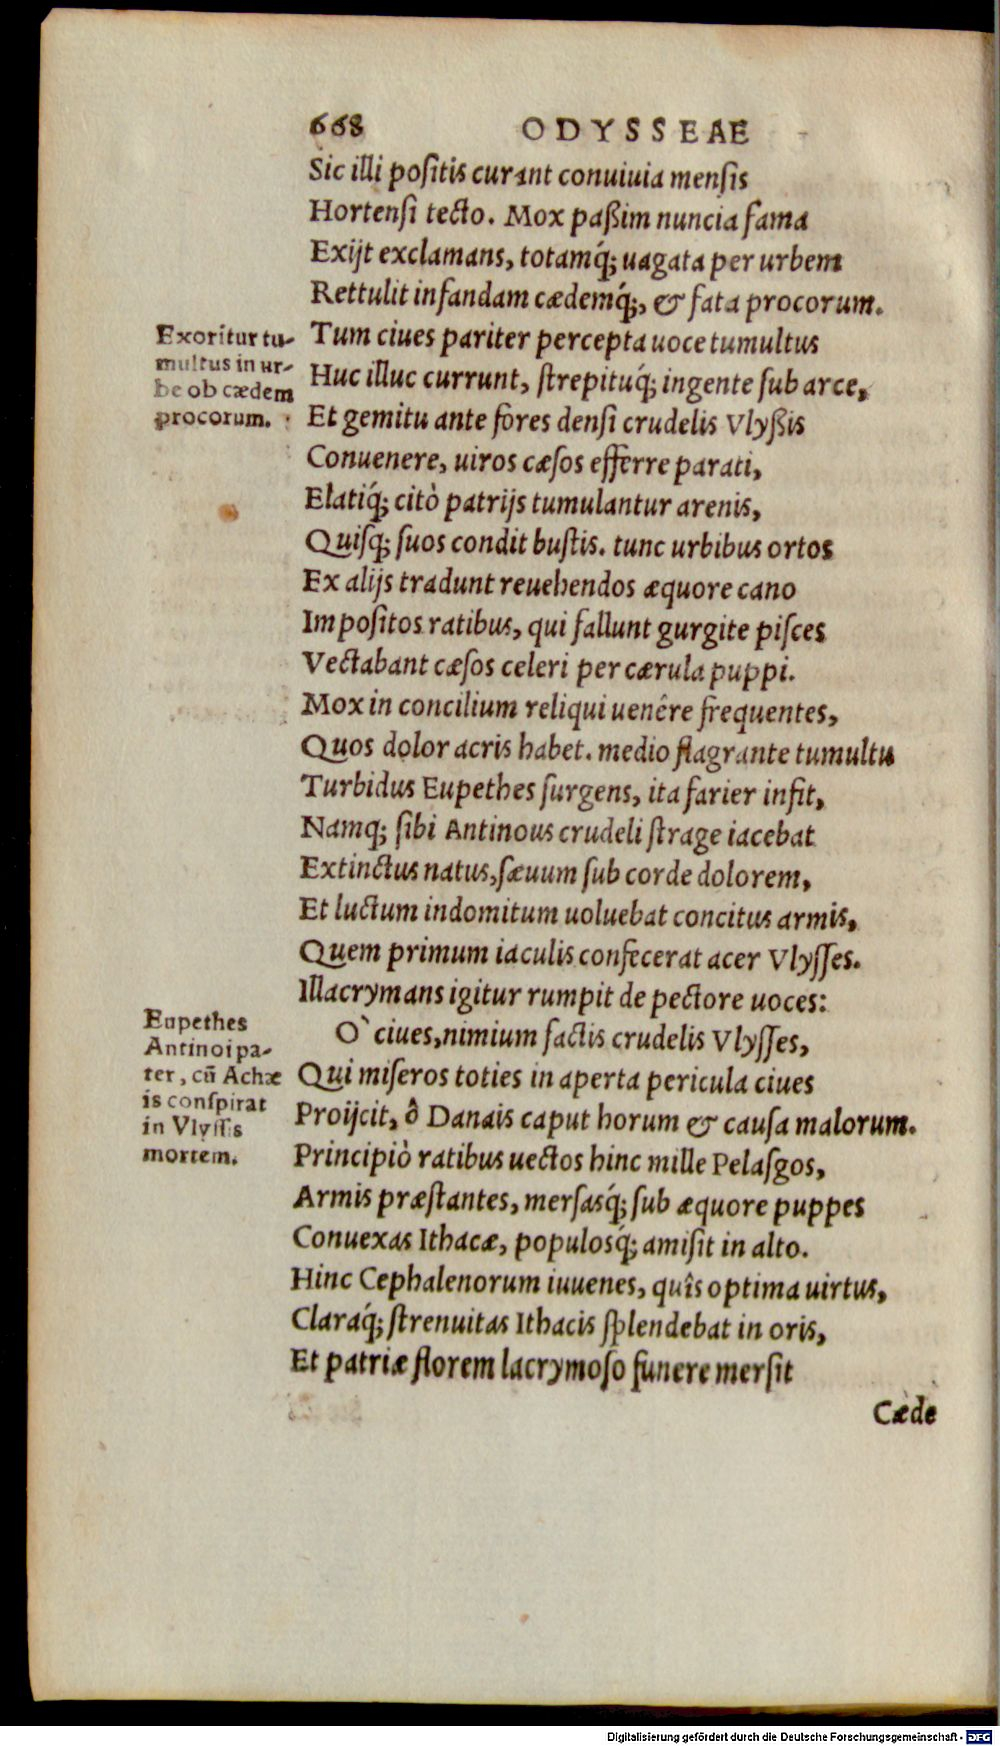 668 ODYSSEAE
Sic illi positis curant conuiuia mensis
Hortensi tecto. Mox paßim nuncia fama
Exijt exclamans, totamq́; uagata per urbem
Rettulit infandam cædemq́;, & fata procorum.
Exoritur tu-
multus in ur-
be ob cædem
procorum.
Tum ciues pariter percepta uoce tumultus
Huc illuc currunt, strepituq́; ingente sub arce,
Et gemitu ante fores densi crudelis Vlyßis
Conuenere, uiros cæsos efferre parati,
Elatiq́; citò patrijs tumulantur arenis,
Quisq; suos condit bustis. tunc urbibus ortos
Ex alijs tradunt reuehendos æquore cano
Impositos ratibus, qui fallunt gurgite pisces
Vectabant cæsos celeri per cærula puppi.
Mox in concilium reliqui uenêre frequentes,
Quos dolor acris habet. medio flagrante tumultu
Turbidus Eupethes surgens, ita farier infit,
Namq; sibi Antinous crudeli strage iacebat
Extinctus natus, sæuum sub corde dolorem,
Et luctum indomitum uoluebat concitus armis,
Quem primum iaculis confecerat acer Vlysses.
Illacrymans igitur rumpit de pectore uoces:
Eupethes
Antinoi pa-
ter, cū Achæ
is conspirat
in Vlyssis
mortem.
O` ciues, nimium factis crudelis Vlysses,
Qui miseros toties in aperta pericula ciues
Proijcit, ô Danais caput horum & causa malorum.
Principiò ratibus uectos hinc mille Pelasgos,
Armis præstantes, mersasq́; sub æquore puppes
Conuexas Ithacæ, populosq́; amisit in alto.
Hinc Cephalenorum iuuenes, quîs optima uirtus,
Claraq́; strenuitas Ithacis splendebat in oris,
Et patriæ florem lacrymoso funere mersit
Cæde
Digitalisierung gefördert durch die Deutsche Forschungsgemeinschaft - DFG